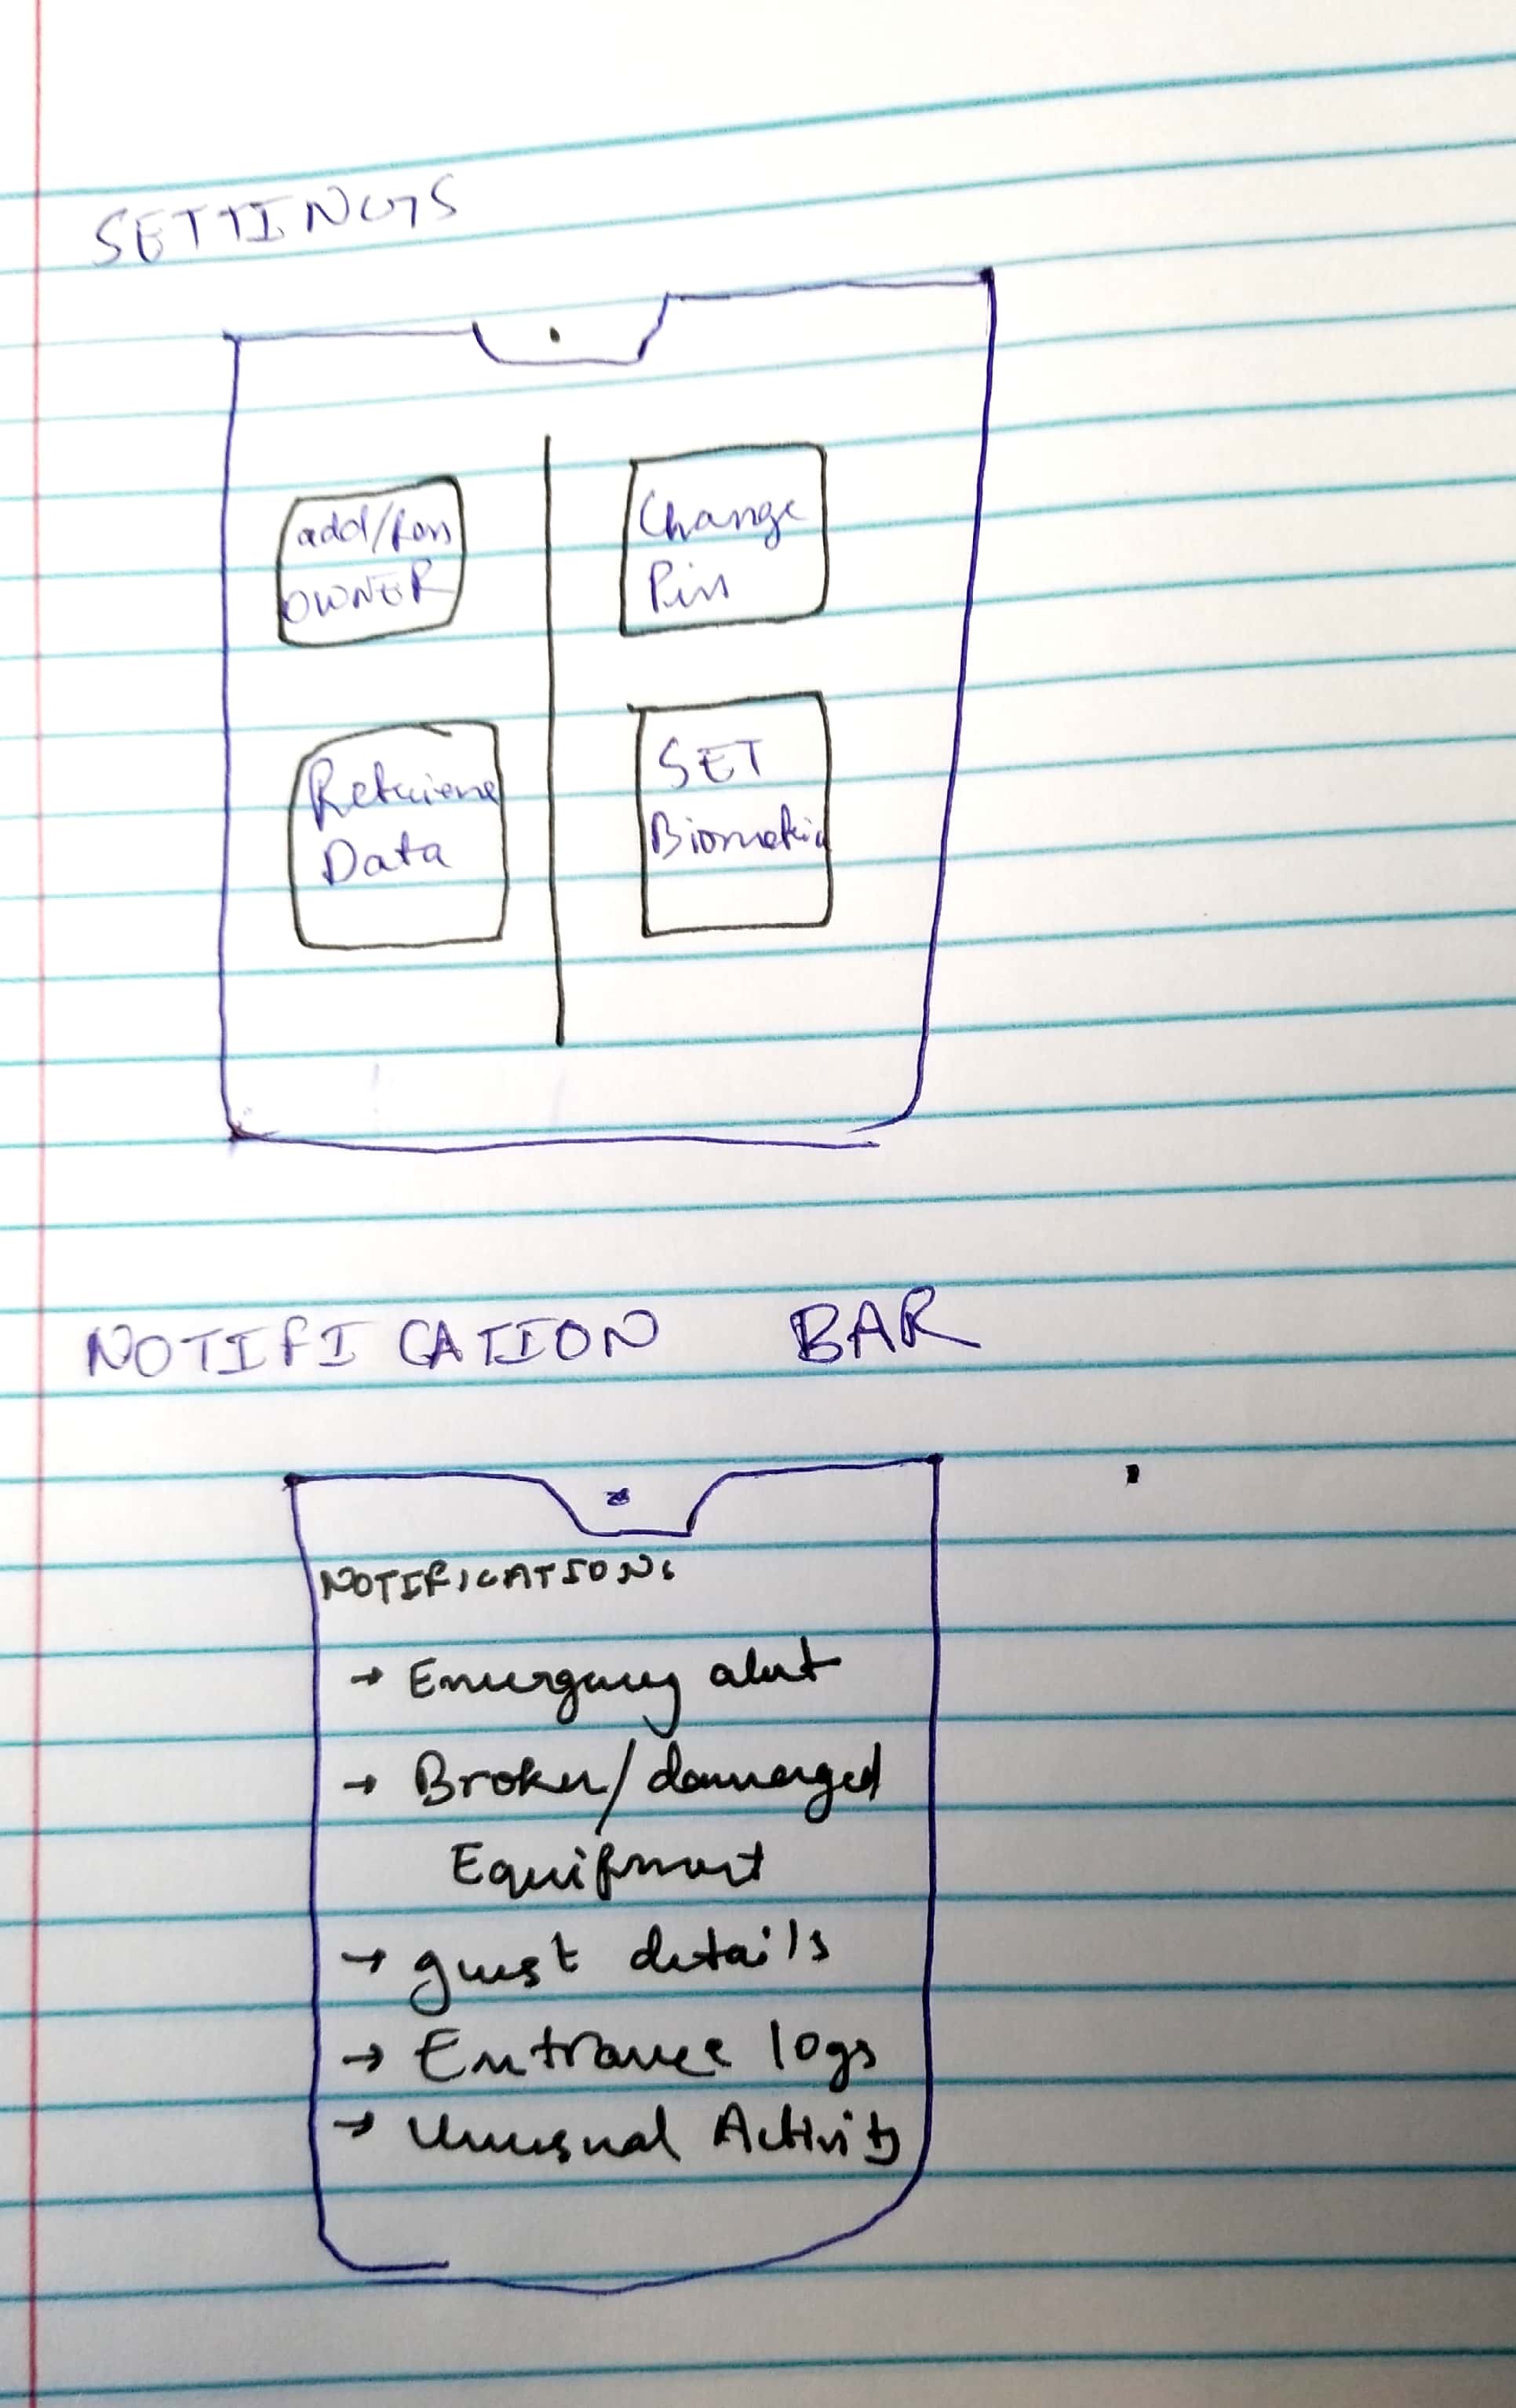 SETTINGS
add/Rem
OWNER
Change
Pin
Retrieve
Data
SET
Biometric
NOTIFICATION BAR
NOTIFICATIONS
→ Emergency alert
→ Broken/damaged
Equipment
→ guest details
→ Entrance logs
→ Unusual Activity